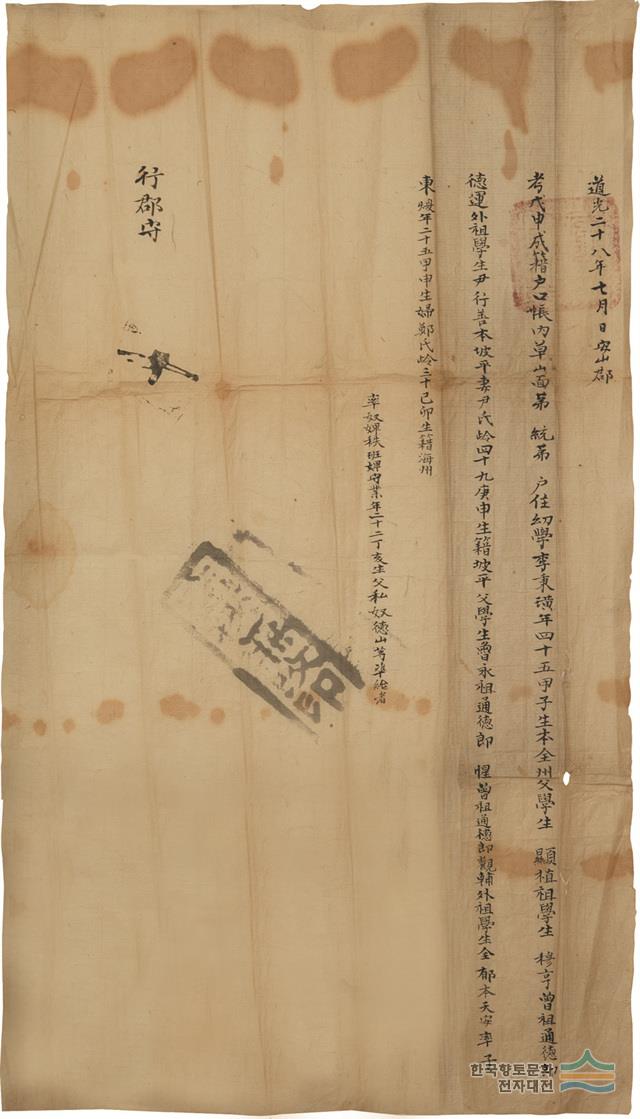 道光二十八年七月日安山郡
考戊申成籍户口帳內草山面苐 統苐 户住幼學李東濱年四十五甲子生本全州父學生 顯植祖學生 穆亨曾祖通德郎
德運外祖學生尹行善本坡平妻尹氏齡四十九庚申生籍坡平父學生曾永祖通德郎 惺曾祖通德郎觀輔外祖學生全 郁本天安率子
東 年二十五甲申生婦鄭氏齡三十己卯生籍海州
率奴婢秩班婢守業年二十二丁亥生父私奴德山等準給者
行郡守
한국향토문화
전자대전